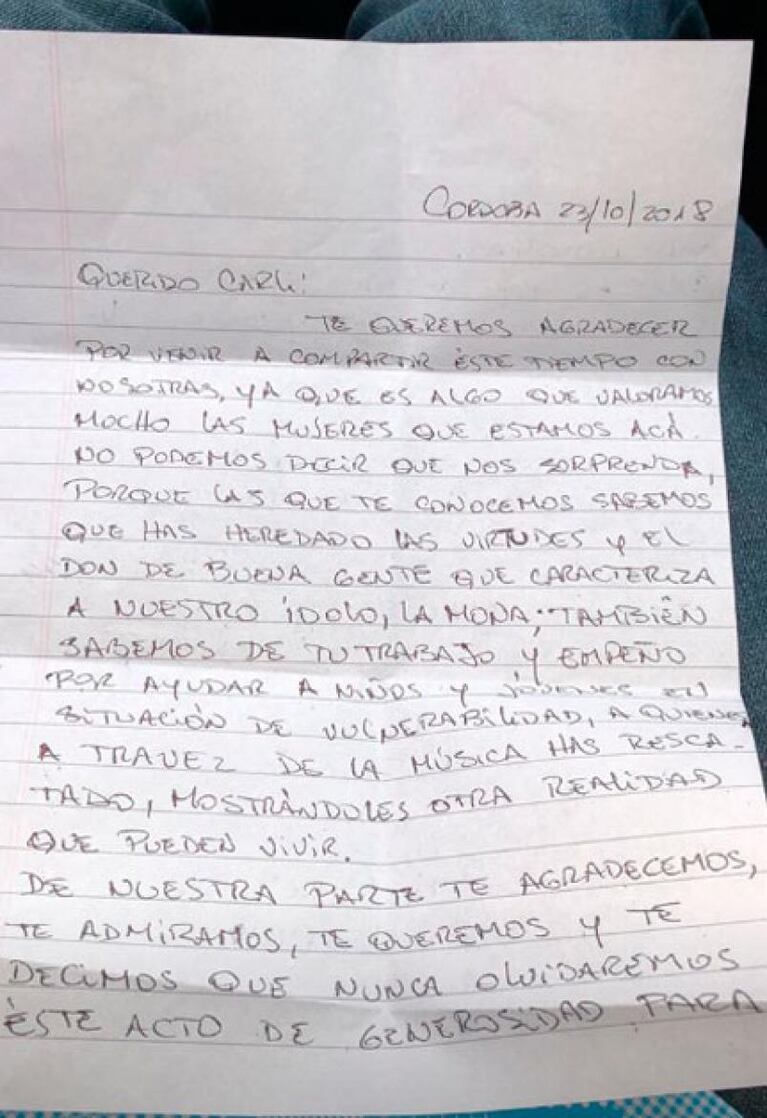 CORDOBA 23/10/2018
QUERIDO CARLI:
TE QUEREMOS AGRADECER
POR VENIR A COMPARTIR ÉSTE TIEMPO CON
NOSOTRAS, YA QUE ES ALGO QUE VALORAMOS
MOCHO LAS MUJERES QUE ESTAMOS ACÁ.
NO PODEMOS DECIR QUE NOS SORPRENDA,
PORQUE LAS QUE TE CONOCEMOS SABEMOS
QUE HAS HEREDADO LAS VIRTUDES Y EL
DON DE BUENA GENTE QUE CARACTERIZA
A NUESTRO ÍDOLO, LA MONA; TAMBIÉN
SABEMOS DE TU TRABAJO Y EMPEÑO
POR AYUDAR A NIÑOS Y JÓVENES EN
SITUACIÓN DE VULNERABILIDAD, A QUIENES
A TRAVEZ DE LA MÚSICA HAS RESCA-
TADO, MOSTRÁNDOLES OTRA REALIDAD
QUE PUEDEN VIVIR.
DE NUESTRA PARTE TE AGRADECEMOS,
TE ADMIRAMOS, TE QUEREMOS Y TE
DECIMOS QUE NUNCA OLVIDAREMOS
ÉSTE ACTO DE GENEROSIDAD PARA